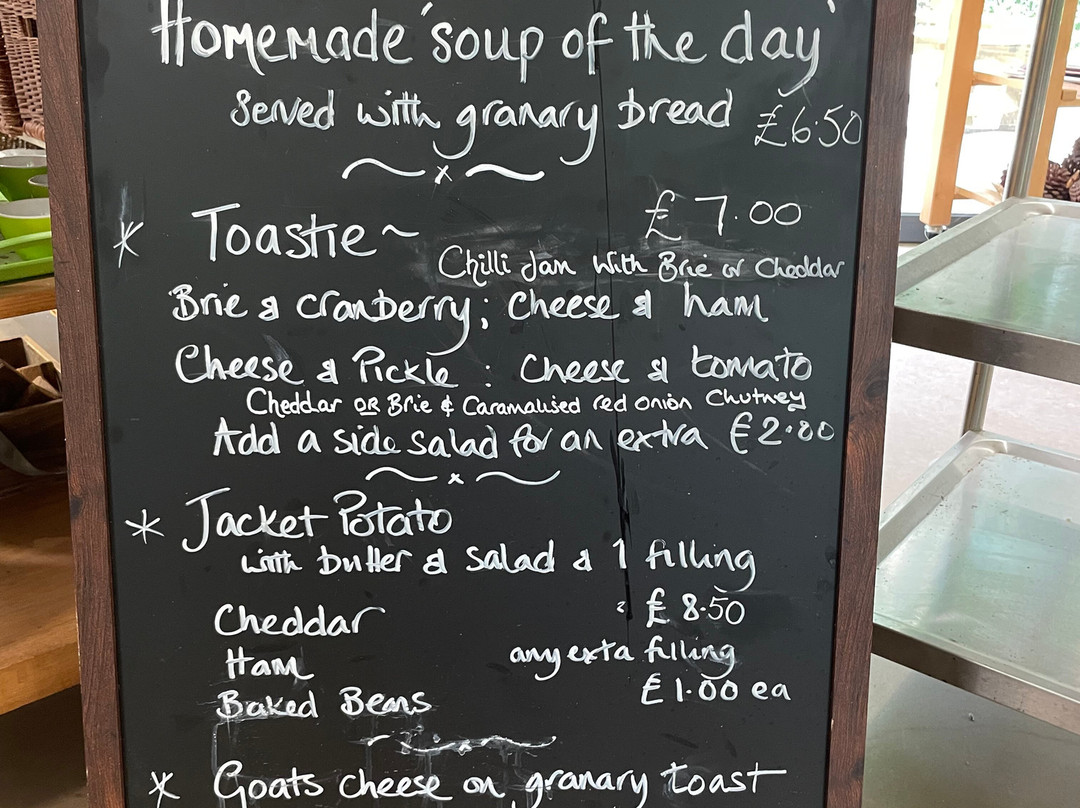 Homemade 'soup of the day'
Served with granary bread £6.50
~x~
* Toastie~ £7.00
Chilli Jam with Brie or Cheddar
Brie & cranberry; Cheese & ham
Cheese & Pickle : Cheese & tomato
Cheddar OR Brie & Caramalised red onion Chutney
Add a side salad for an extra £2.00
~x~
* Jacket Potato
with butter & salad & 1 filling
Cheddar £8.50
Ham any exta filling
Baked Beans £1.00 ea
~x~
* Goats cheese on granary toast